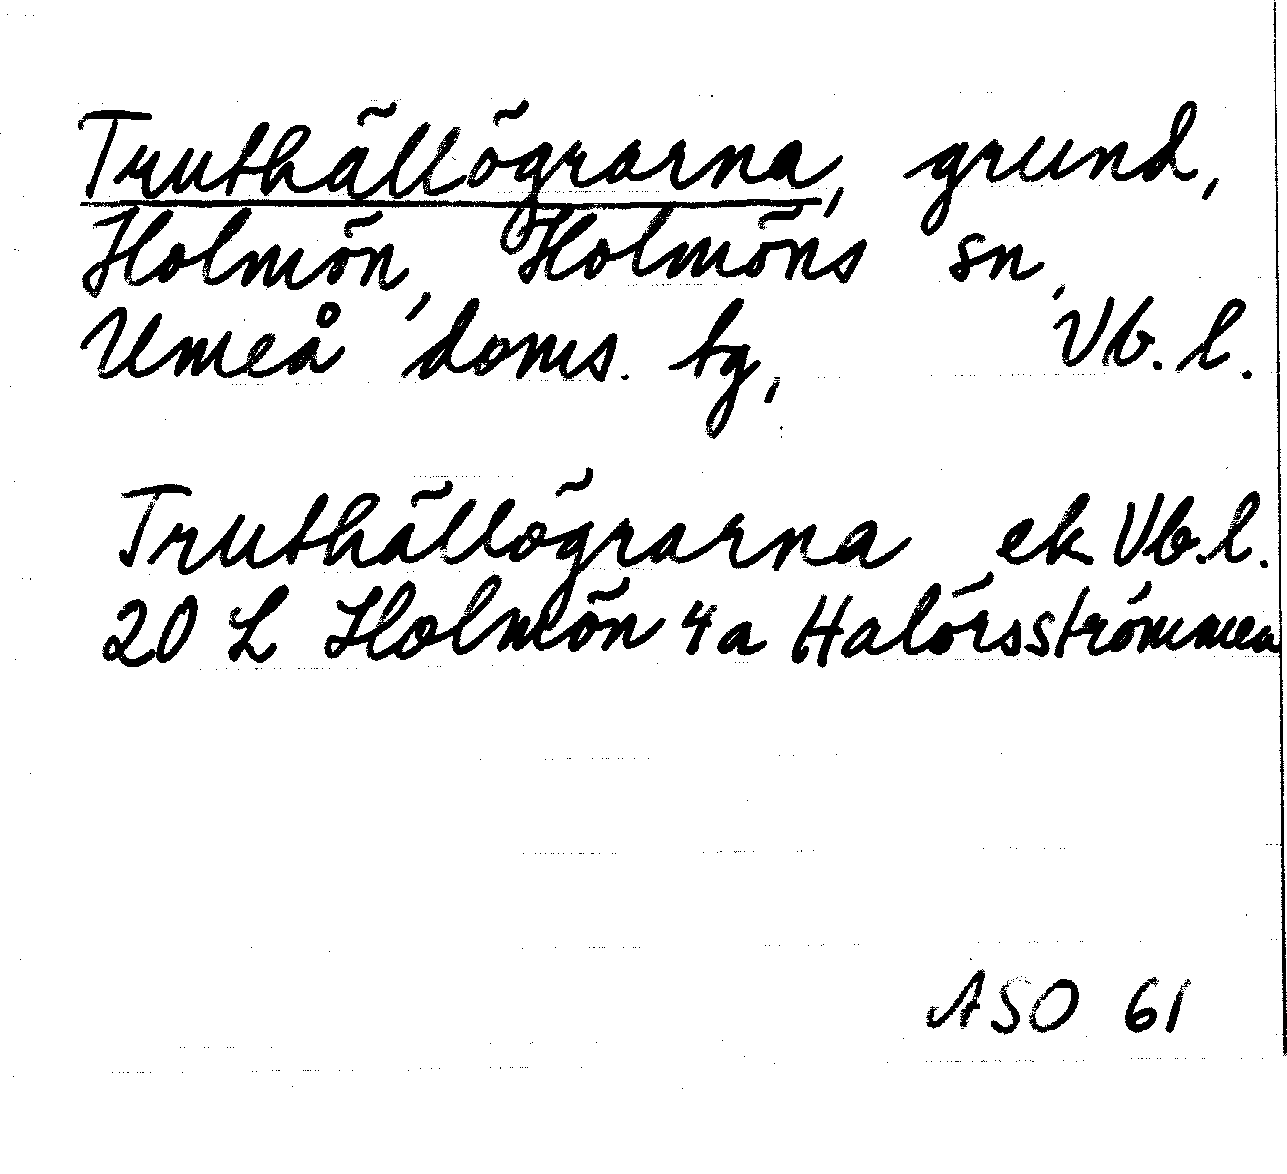 Truthällögrarna, grund,
Holmön, Holmöns sn,
Umeå doms. tg, Vb. l.
Truthällögrarna ek Vb. l.
20 L Holmön 4a Halörsströmmen
ASO 61